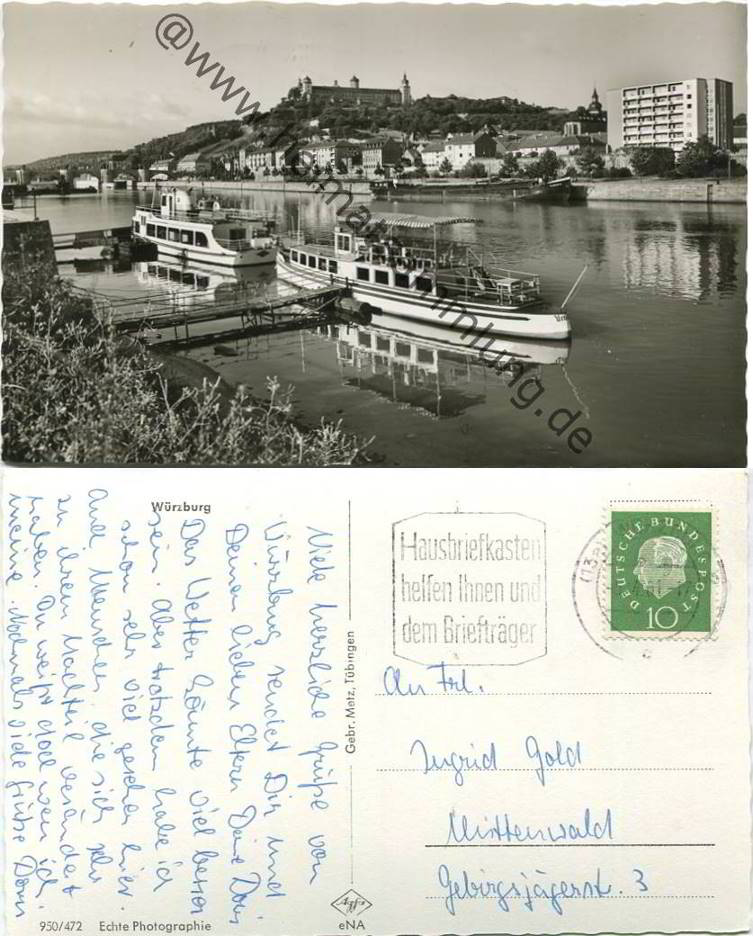 @www.heimatsammlung.de
Würzburg
Viele herzliche Grüße von
Würzburg sendet Dir und
Deinen lieben Eltern Deine Doris
Das Wetter könnte viel besser
sein. Aber trotzdem habe ich
schon sehr viel gesehen hier.
Auch Menschen, die sich sehr
zu ihrem Nachteil verändert
haben. Du weißt doch wen ich
meine. Nochmals viele Grüße Doris
950/472 Echte Photographie
Gebr. Metz, Tübingen
Agfa
eNA
Hausbriefkasten
helfen Ihnen und
dem Briefträger
(13a)
DEUTSCHE BUNDESPOST
10
An Frl.
Ingrid Gold
Mittenwald
Gebirgsjägerstr. 3